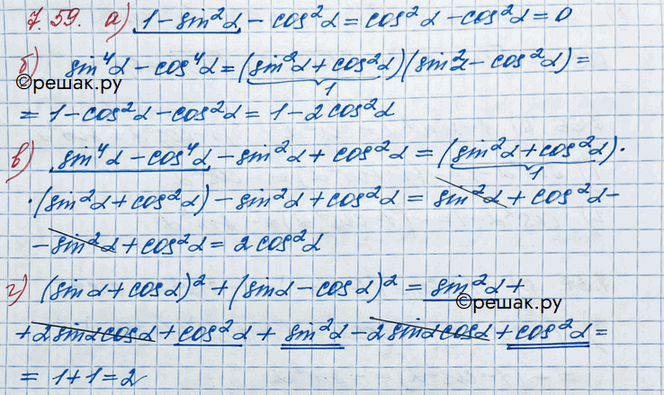 7.59. а) 1-sin²α - cos²α = cos²α - cos²α = 0
б) sin⁴α - cos⁴α = (sin²α + cos²α)(sin²α - cos²α) =
1
©решак.ру
= 1-cos²α-cos²α = 1-2cos²α
в) sin⁴α - cos⁴α - sin²α + cos²α = (sin²α + cos²α)·
1
·(sin²α + cos²α) - sin²α + cos²α = sin²α + cos²α -
- sin²α + cos²α = 2cos²α
г) (sinα + cosα)² + (sinα - cosα)² = sin²α +
©решак.ру
+2sinαcosα + cos²α + sin²α - 2sinαcosα + cos²α =
= 1+1=2